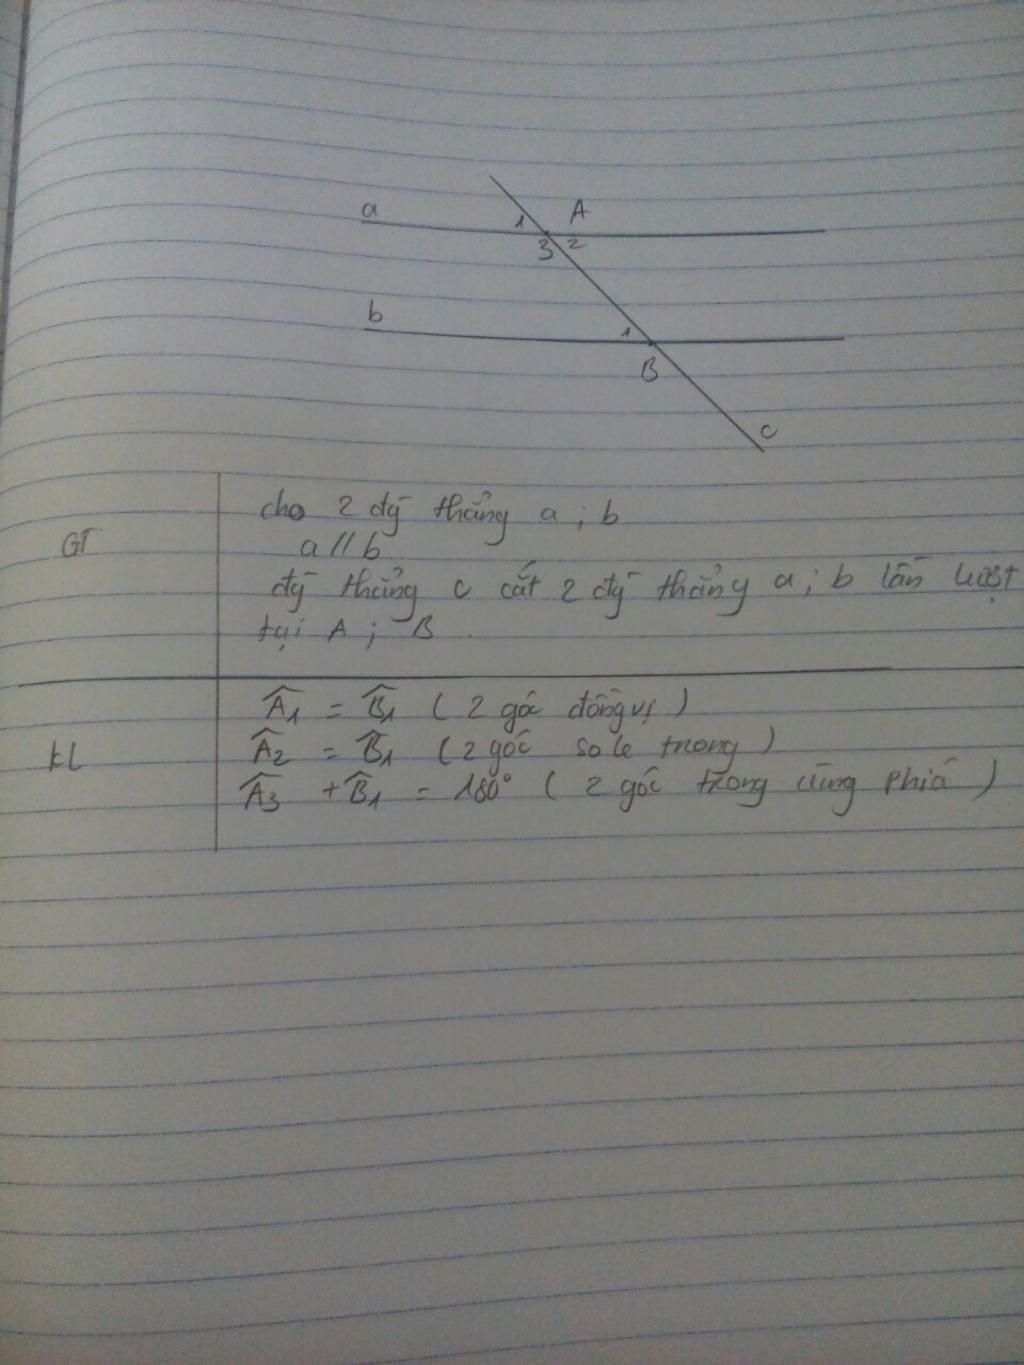 a
1 A
3 2
b
1
B
c
cho 2 đg thẳng a ; b
GT
a // b
đg thẳng c cắt 2 đg thẳng a ; b lần lượt
tại A ; B .
Â1 = B̂1 ( 2 góc đồng vị )
KL
Â2 = B̂1 ( 2 góc so le trong )
Â3 + B̂1 = 180° ( 2 góc trong cùng phía )